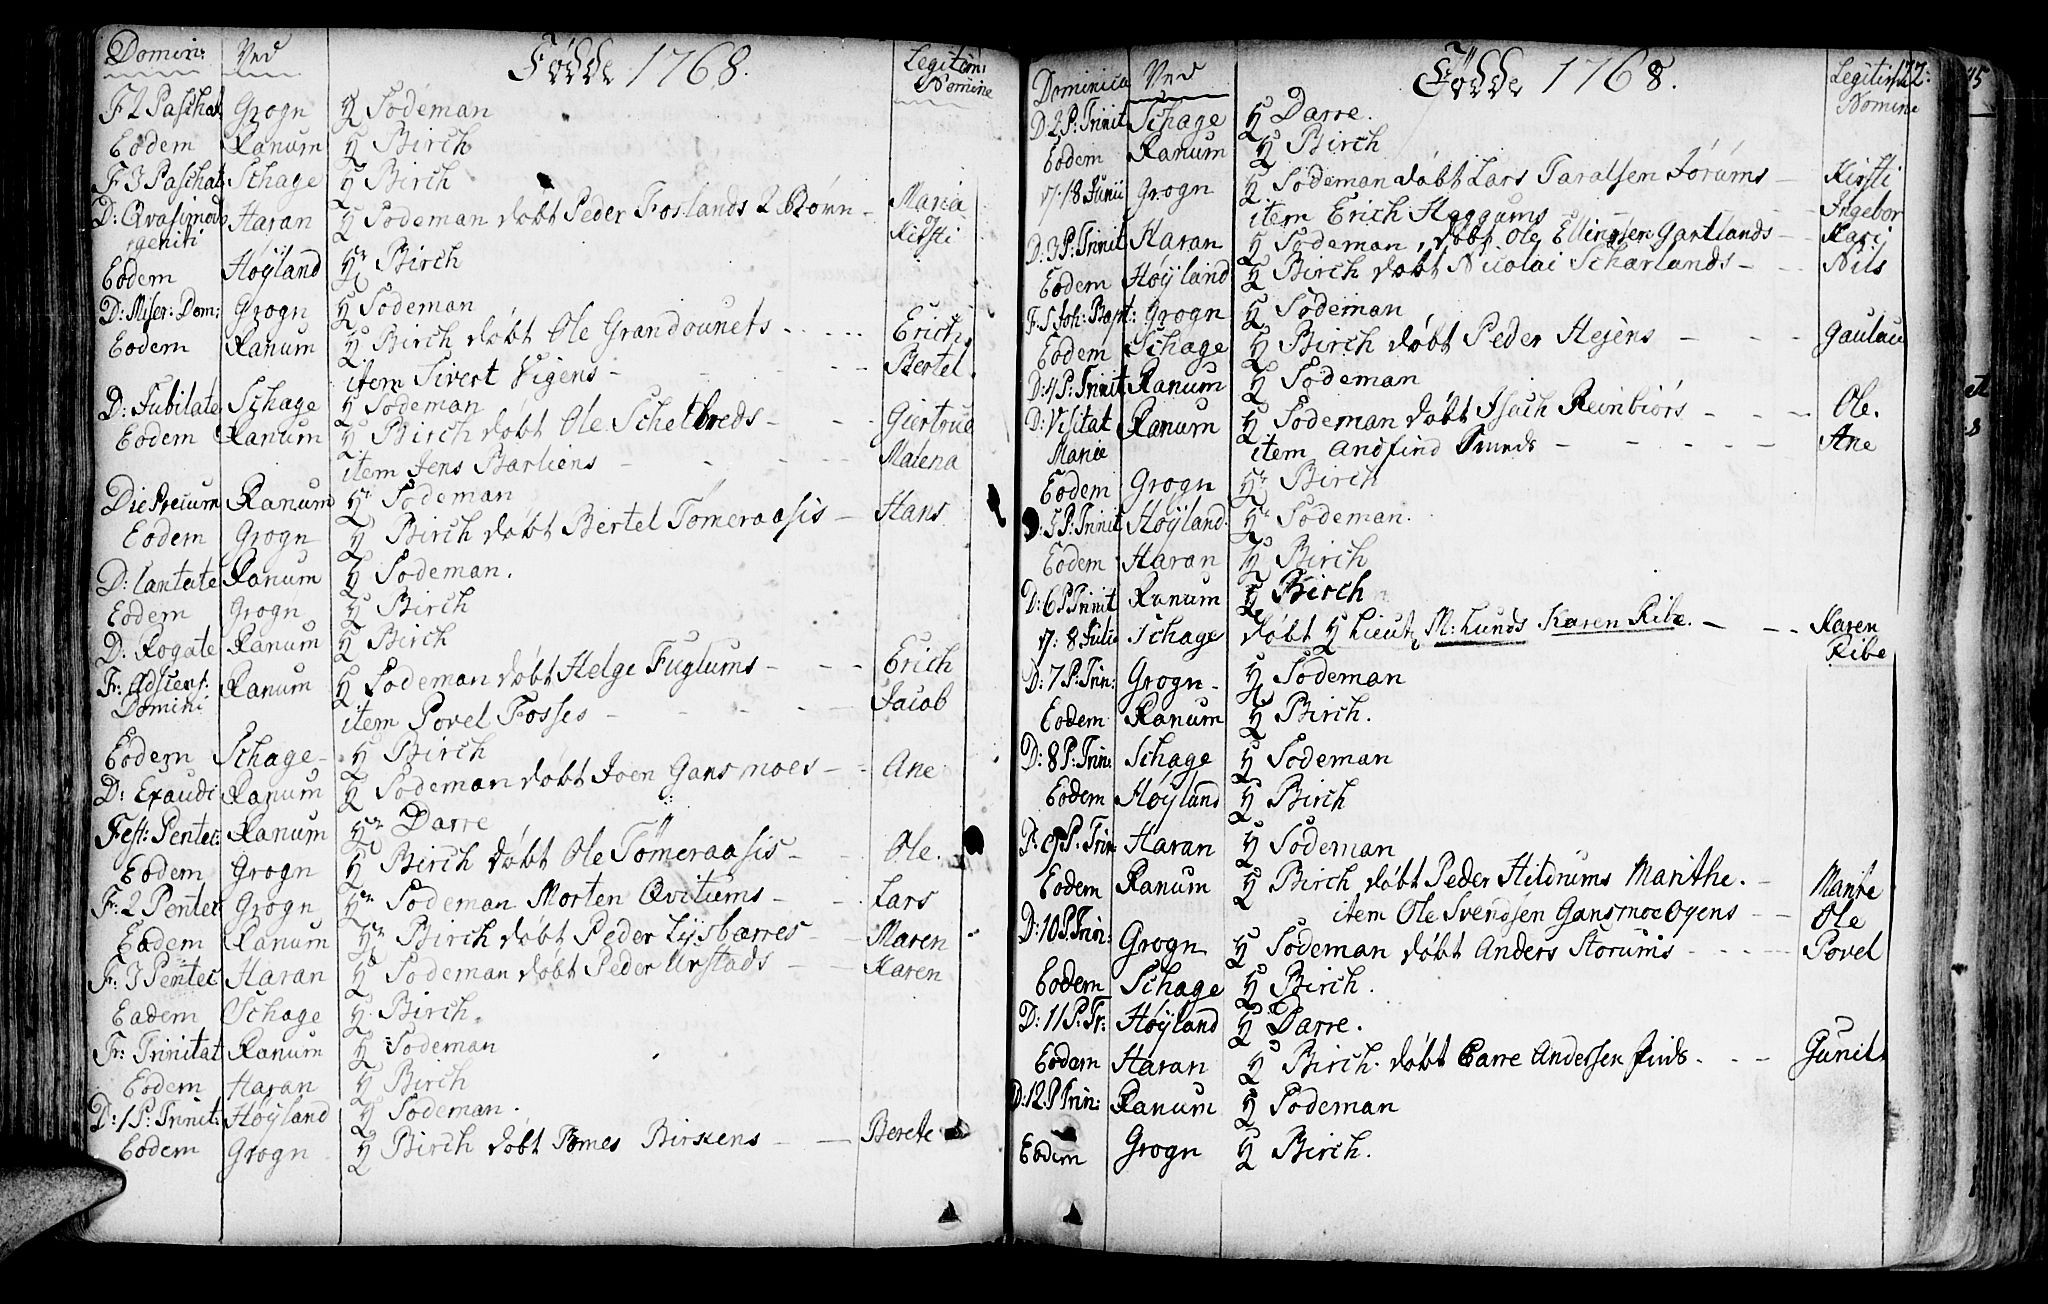 Domin: Ved Fødde 1768. Legitimi Nomine
F 2 Paschat Grogn H Sodeman
Eodem Ranum H Birch
F 3 Paschat Schage H Birch
D: Qvasimodo geniti Haran H Sodeman døbt Peder Foslands 2 Børn – Maria Kirsti
Eodem Høyland Hr Birch
D: Miser: Dom: Grogn H Sodeman
Eodem Ranum H Birch døbt Ole Grandounets - - - - Erich
item Sivert Vigens - - - - Bertel
D: Jubilate Schage H Sodeman
Eodem Ranum H Birch døbt Ole Schelbreds - - - Giertrud
item Jens Barliens - - - - Malena
Die Precum Ranum Hr Sodeman
Eodem Grogn H Birch døbt Bertel Tømeraasis – Hans
D: Cantate Ranum H Sodeman.
Eodem Grogn H Birch
D: Rogate Ranum H Birch
Fr: Adscens: Domini Ranum H Sodeman døbt Helge Fuglums - - - Erich
item Povel Fosses - - - - Jacob
Eodem Schage – H Birch
D: Exaudi Ranum H Sodeman døbt Joen Gansmoes - - Ane
Fest: Pentec: Ranum Hr Darre
Eodem Grogn H Birch døbt Ole Tømeraasis - - Ole.
F: 2 Pentec Grogn Hr Sodeman Morten Qvitums - - Lars
Eodem Ranum Hr Birch døbt Peder Lysbærres - - Maren
F: 3 Pentec Haran H Sodeman døbt Peder Urstads - - Karen
Eadem Schage H Birch.
Fr: Trinitat Ranum H Sodeman
Eodem Haran H Birch
D: 1 P: Trinit: Høyland H Sodeman.
Eodem Grogn H Birch døbt Tomes Birkens - - Berete
Dominica Ved Fødde 1768. Legitimi Nomine 122:
D 2 P: Trinit Schage H Darre.
Eodem Ranum H Birch
18 Junii Grogn H Sodeman døbt Lars Taralsen Jørums - Kirsti
item Erich Haggums - - Ingebor
D: 3 P: Trinit Haran H Sodeman, døbt Ole Ellingsen Gartlands - - Kari
Eodem Høyland H Birch døbt Nicolai Scharlands - - Nils
F: S Joh: Bapt: Grogn H Sodeman
Eodem Schage H Birch døbt Peder Hejens - - - Gaulau
D: 4 P: Trinit Ranum H Sodeman
D: Visitat Mariæ Ranum H Sodeman døbt Isach Reinbiørs - - - Ole.
item Andfind - - - - Ane
Eodem Grogn Hr Birch
D: 5 P: Trinit Høyland Hr Sodeman.
Eodem Haran H Birch
D: 6 P Trinit Ranum H Birch
8 Julii Schage døbt H Lieut M: Lunds Karen Ribe. - - Karen Ribe
D: 7 P: Trin: Grogn - H Sodeman
Eodem Ranum H Birch.
D: 8 P: Trin: Schage H Sodeman
Eodem Høyland H Birch
D: 9 P: Trin: Haran H Sodeman
Eodem Ranum H Birch døbt Peder Hildrums Marithe. - Marite
item Ole Svendsen Gansmoe Oyens - - Ole
D: 10 P. Trin: Grogn H Sodeman døbt Anders Storums - - - - Povel
Eodem Schage H Birch.
D: 11 P: Tr: Høyland H Darre.
Eodem Haran H Birch. døbt Andersen - - - Gunil
D: 12. P Trin: Ranum H Sodeman
Eodem Grogn H Birch.